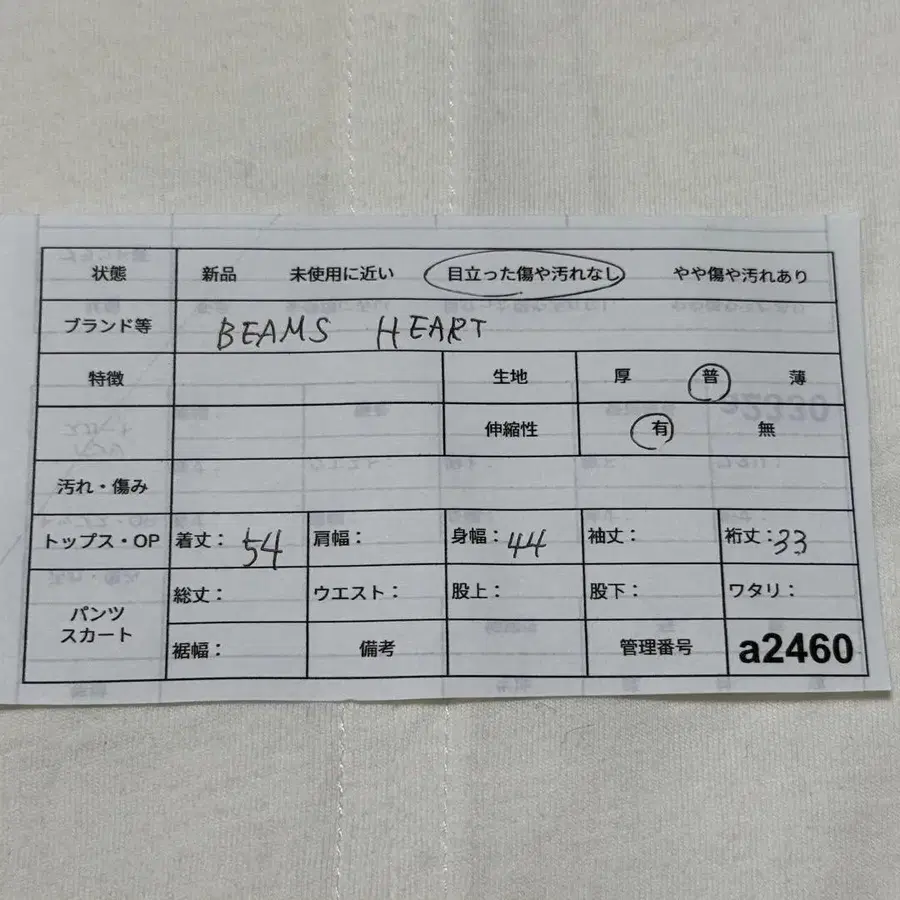 状態 新品 未使用に近い 目立った傷や汚れなし やや傷や汚れあり
ブランド等 BEAMS HEART
特徴 生地 厚 普 薄
伸縮性 有 無
汚れ・傷み
トップス・OP 着丈: 54 肩幅: 身幅: 44 袖丈: 裄丈: 33
パンツ
スカート
総丈: ウエスト: 股上: 股下: ワタリ:
裾幅: 備考 管理番号 a2460